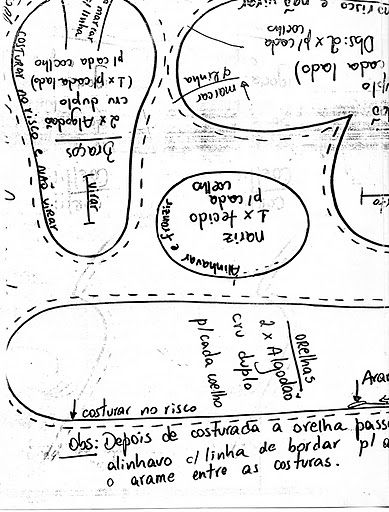 marcar
c/ linha
Braços
2 x Algodão
cru duplo
(1 x p/ cada lado)
p/ cada coelho
virar
COSTURAR no risco e NÃO VIRAR
no risco e não virar
Obs: 2 x p/ cada
coelho
cada lado)
marcar
c/ linha
nariz
1 x tecido
p/ cada
coelho
Alinhavar e franzir
orelhas
2 x Algodão
cru duplo
p/ cada coelho
costurar no risco
Arar
Obs: Depois de costurada a orelha pass
alinhavo c/ linha de bordar p/ a
o arame entre as costuras.